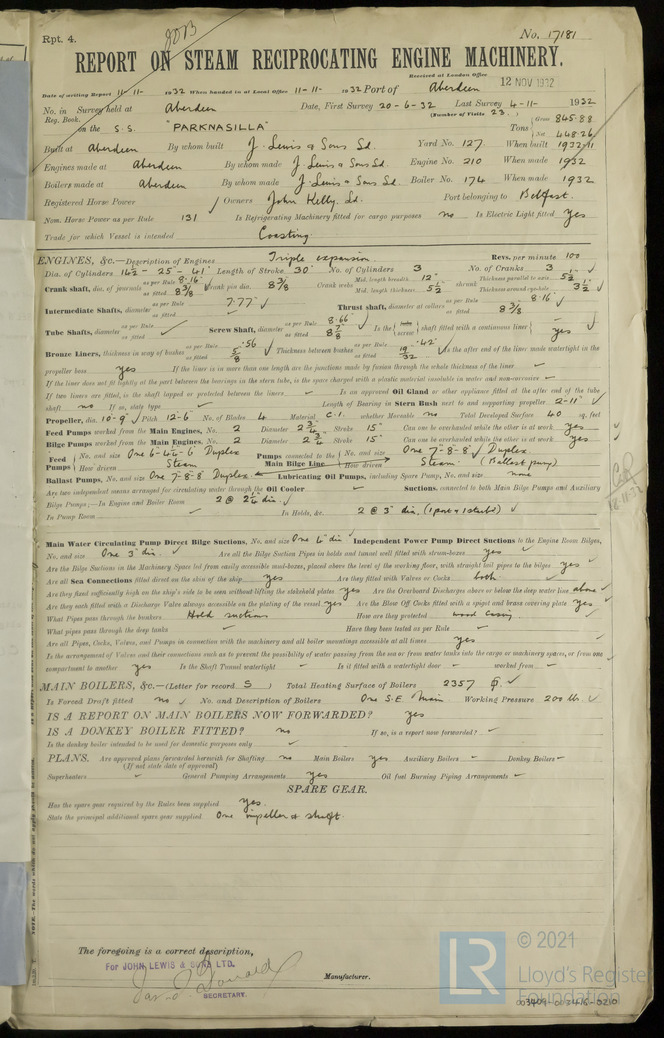 Rpt. 4.
No. 17181
REPORT ON STEAM RECIPROCATING ENGINE MACHINERY.
Received at London Office 12 NOV 1932
Date of writing Report 11-11- 1932 When handed in at Local Office 11-11- 1932 Port of Aberdeen
No. in Survey held at Aberdeen Date, First Survey 20-6-32 Last Survey 4-11- 1932
Reg. Book. (Number of Visits 23.)
on the S.S. "PARKNASILLA" Tons Gross 845.88 Net 448.26
Built at Aberdeen By whom built J. Lewis & Sons Ld. Yard No. 127. When built 1932-11
Engines made at Aberdeen By whom made J. Lewis & Sons Ld. Engine No. 210 When made 1932
Boilers made at Aberdeen By whom made J. Lewis & Sons Ld. Boiler No. 174 When made 1932
Registered Horse Power Owners John Kelly, Ld. Port belonging to Belfast.
Nom. Horse Power as per Rule 131 Is Refrigerating Machinery fitted for cargo purposes no Is Electric Light fitted yes
Trade for which Vessel is intended Coasting.
ENGINES, &c.—Description of Engines Triple expansion Revs. per minute 100
Dia. of Cylinders 14½ - 25 - 41" Length of Stroke 30" No. of Cylinders 3 No. of Cranks 3
Crank shaft, dia. of journals as per Rule 8.16" as fitted 8 3/8 Crank pin dia. 8 3/8 Crank webs Mid. length breadth 12" Mid. length thickness 5½ shrunk Thickness parallel to axis 5½ Thickness around eyehole 3½
Intermediate Shafts, diameter as per Rule 7.77" as fitted Thrust shaft, diameter at collars as per Rule 8.16" as fitted 8 3/8
Tube Shafts, diameter as per Rule as fitted Screw Shaft, diameter as per Rule 8.66" as fitted 8 7/8 Is the tube screw shaft fitted with a continuous liner yes
Bronze Liners, thickness in way of bushes as per Rule .56 as fitted 5/8 Thickness between bushes as per Rule .42 as fitted 19/32 Is the after end of the liner made watertight in the
propeller boss yes If the liner is in more than one length are the junctions made by fusion through the whole thickness of the liner
If the liner does not fit tightly at the part between the bearings in the stern tube, is the space charged with a plastic material insoluble in water and non-corrosive
If two liners are fitted, is the shaft lapped or protected between the liners Is an approved Oil Gland or other appliance fitted at the after end of the tube
shaft no If so, state type Length of Bearing in Stern Bush next to and supporting propeller 2-11"
Propeller, dia. 10-9" Pitch 12-6" No. of Blades 4 Material C.I. whether Moveable no Total Developed Surface 40 sq. feet
Feed Pumps worked from the Main Engines, No. 2 Diameter 2¾ Stroke 15" Can one be overhauled while the other is at work yes
Bilge Pumps worked from the Main Engines, No. 2 Diameter 2¾ Stroke 15" Can one be overhauled while the other is at work yes
Feed Pumps No. and size One 6-4½-6 Duplex How driven Steam Pumps connected to the Main Bilge Line No. and size One 7-8-8 Duplex How driven Steam (Ballast pump)
Ballast Pumps, No. and size One 7-8-8 Duplex Lubricating Oil Pumps, including Spare Pump, No. and size none
Are two independent means arranged for circulating water through the Oil Cooler Suctions, connected to both Main Bilge Pumps and Auxiliary
Bilge Pumps;—In Engine and Boiler Room 2 @ 2½ dia.
In Pump Room In Holds, &c. 2 @ 3" dia. (1 port & 1 starbd)
Main Water Circulating Pump Direct Bilge Suctions, No. and size One 6" dia. Independent Power Pump Direct Suctions to the Engine Room Bilges,
No. and size One 3" dia. Are all the Bilge Suction Pipes in holds and tunnel well fitted with strum-boxes yes
Are the Bilge Suctions in the Machinery Space led from easily accessible mud-boxes, placed above the level of the working floor, with straight tail pipes to the bilges yes
Are all Sea Connections fitted direct on the skin of the ship yes Are they fitted with Valves or Cocks both
Are they fixed sufficiently high on the ship's side to be seen without lifting the stokehold plates yes Are the Overboard Discharges above or below the deep water line above
Are they each fitted with a Discharge Valve always accessible on the plating of the vessel yes Are the Blow Off Cocks fitted with a spigot and brass covering plate yes
What Pipes pass through the bunkers Hold suctions How are they protected wood casing
What pipes pass through the deep tanks Have they been tested as per Rule
Are all Pipes, Cocks, Valves, and Pumps in connection with the machinery and all boiler mountings accessible at all times yes
Is the arrangement of Valves and their connections such as to prevent the possibility of water passing from the sea or from water tanks into the cargo or machinery spaces, or from one
compartment to another yes Is the Shaft Tunnel watertight Is it fitted with a watertight door worked from
MAIN BOILERS, &c.—(Letter for record S ) Total Heating Surface of Boilers 2357
Is Forced Draft fitted no No. and Description of Boilers One S.E. Main Working Pressure 200 lb.
IS A REPORT ON MAIN BOILERS NOW FORWARDED? yes
IS A DONKEY BOILER FITTED? no If so, is a report now forwarded?
Is the donkey boiler intended to be used for domestic purposes only
PLANS. Are approved plans forwarded herewith for Shafting no Main Boilers yes Auxiliary Boilers Donkey Boilers
(If not state date of approval)
Superheaters General Pumping Arrangements yes Oil fuel Burning Piping Arrangements
SPARE GEAR.
Has the spare gear required by the Rules been supplied yes.
State the principal additional spare gear supplied One impeller & shaft.
The foregoing is a correct description,
For JOHN LEWIS & SONS LTD.
SECRETARY.
Manufacturer.
LR
© 2021
Lloyd's Register
Foundation
003409-003416-0210